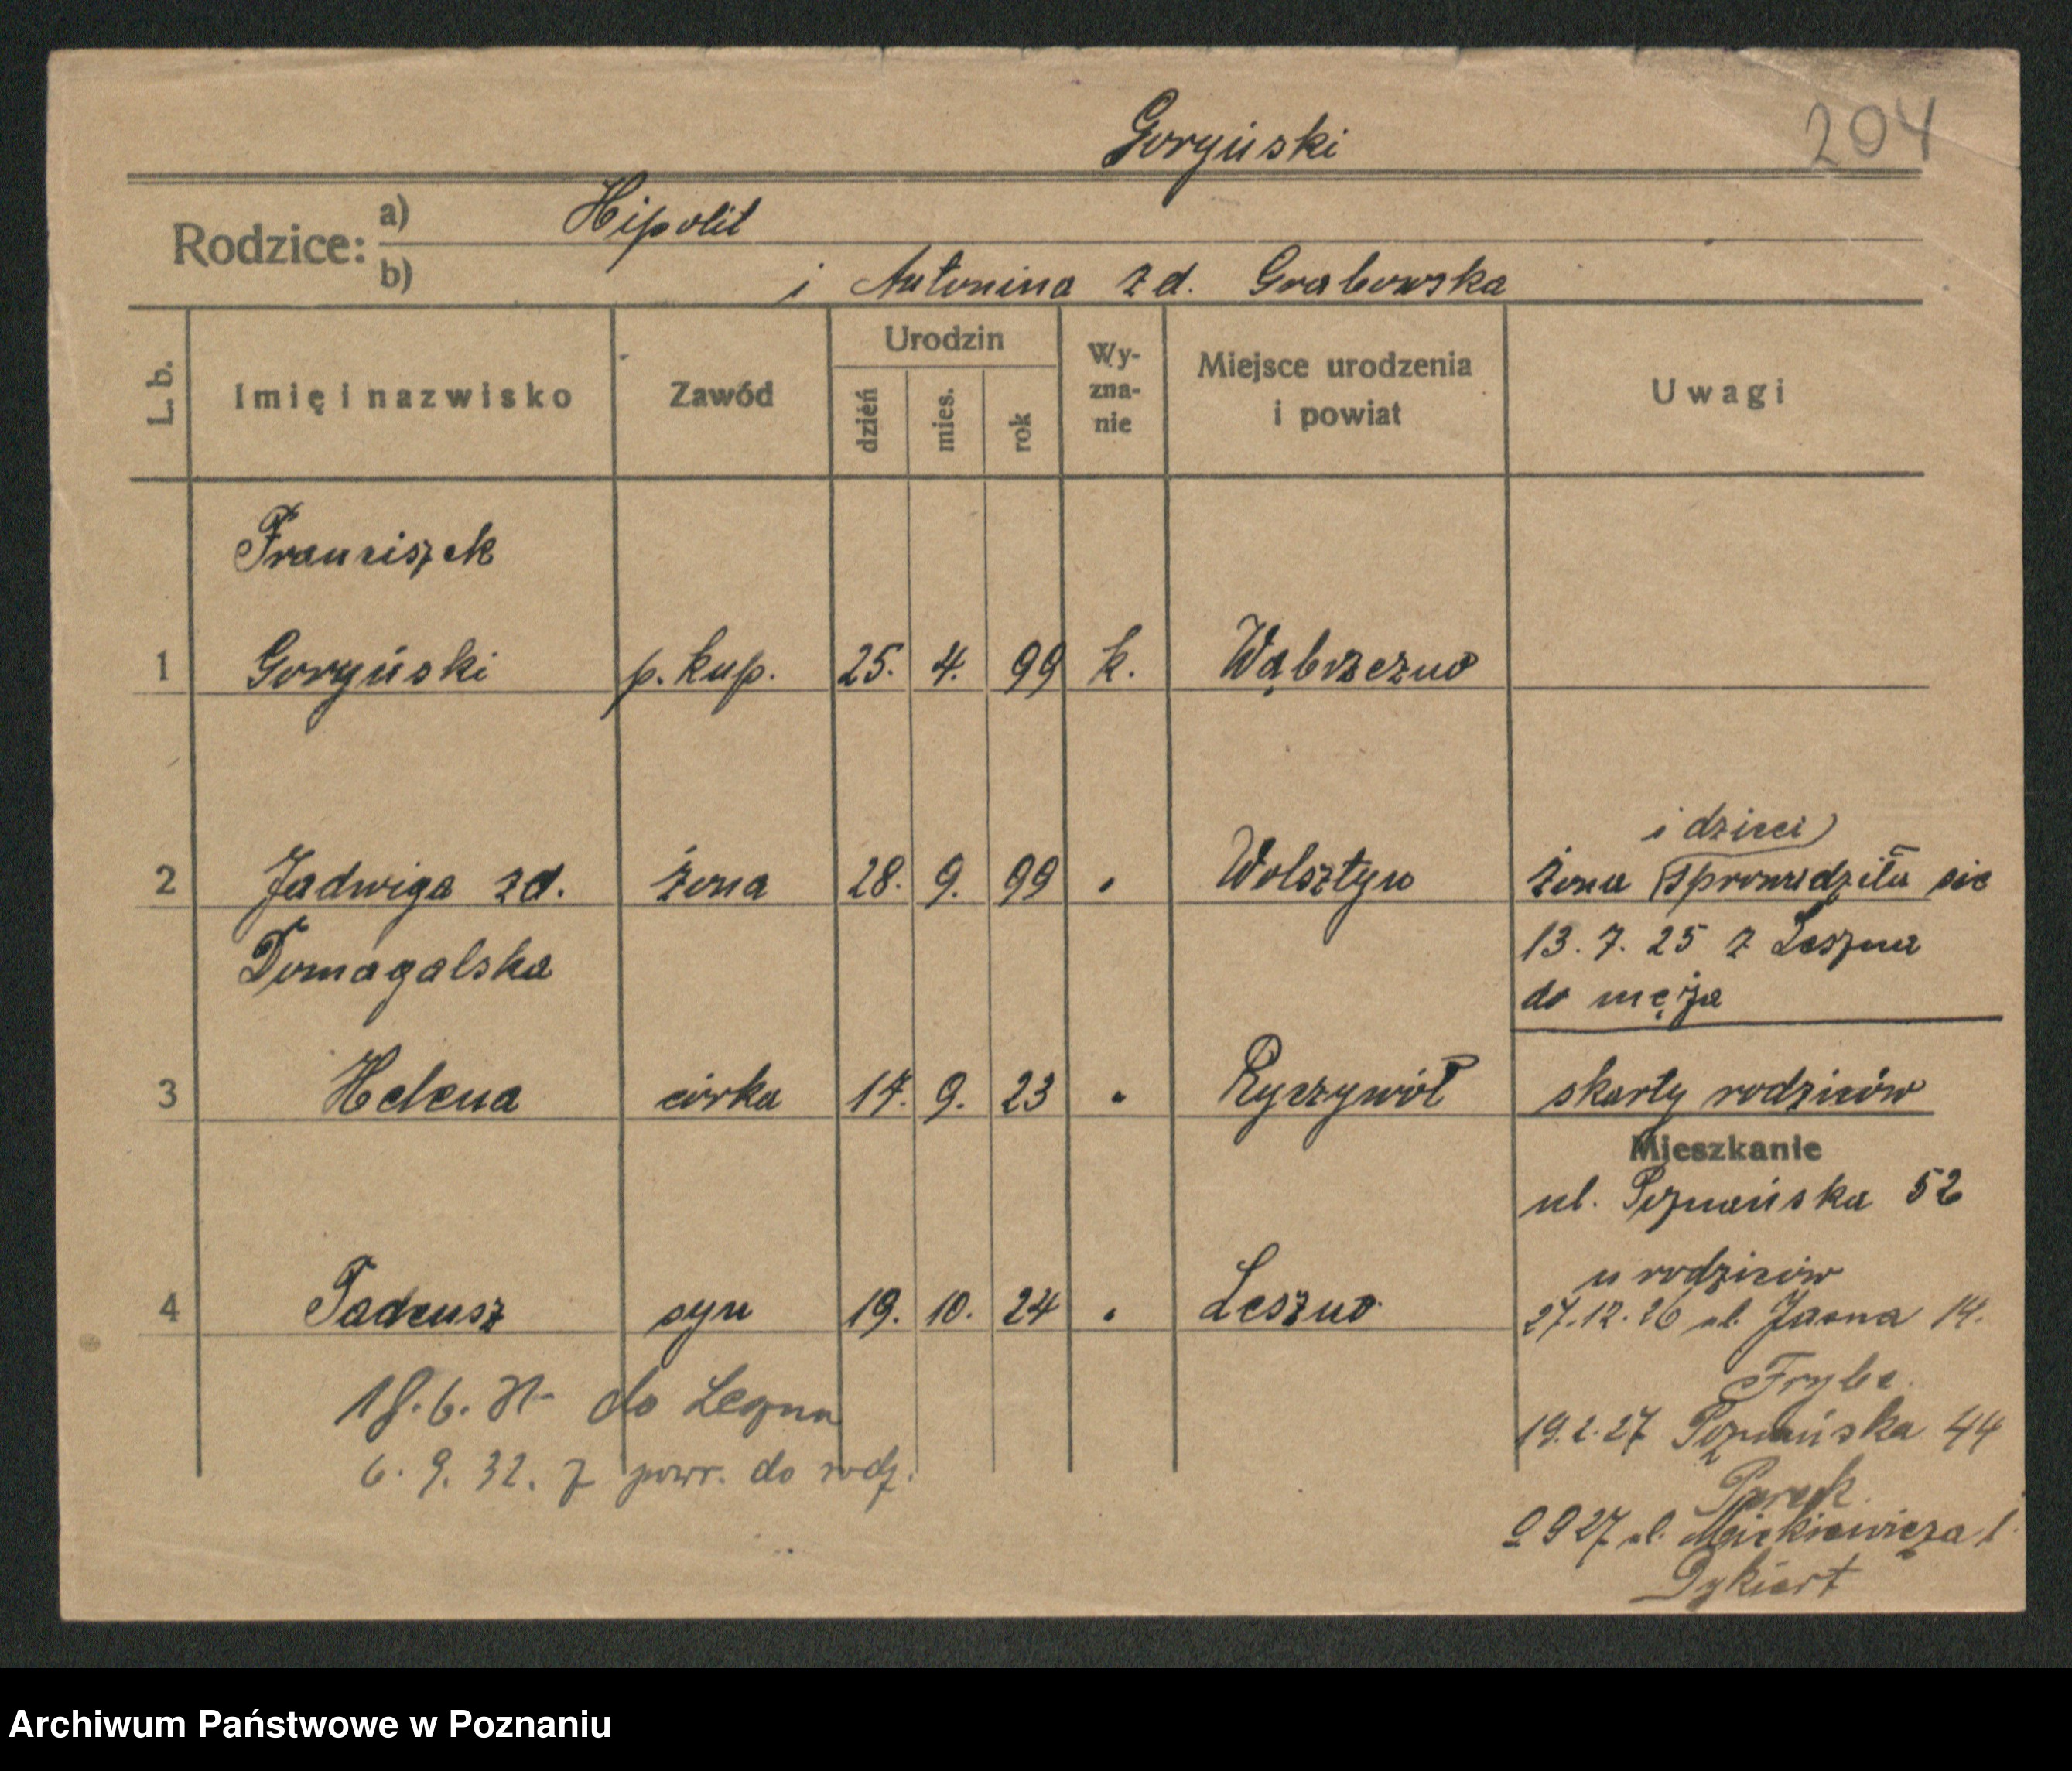 Goryński
204
Rodzice: a) Hipolit
b) i Antonina zd. Grabowska
L. b.
Imię i nazwisko
Zawód
Urodzin
dzień
mies.
rok
Wy-
zna-
nie
Miejsce urodzenia
i powiat
Uwagi
Franciszek
1 Goryński p. kup. 25. 4. 99 k. Wąbrzezno
i dzieci)
2 Jadwiga zd. żona 28. 9. 99 " Wolsztyn żona sprowadziła się
Domagalska
13. 7. 25 z Leszna
do męża
3 Helena córka 17. 9. 23 " Ryczywół skarty rodziców
Mieszkanie
ul. Poznańska 52
u rodziców
4 Tadeusz syn 19. 10. 24 " Leszno 27.12.26 ul. Jasna 14.
18.6. do Leszna
Frybe.
19.2.27 Poznańska 44
6. 9. 32. z powr. do rodz.
9 27 ul. Mickiewicza 1
Dykiert
Archiwum Państwowe w Poznaniu